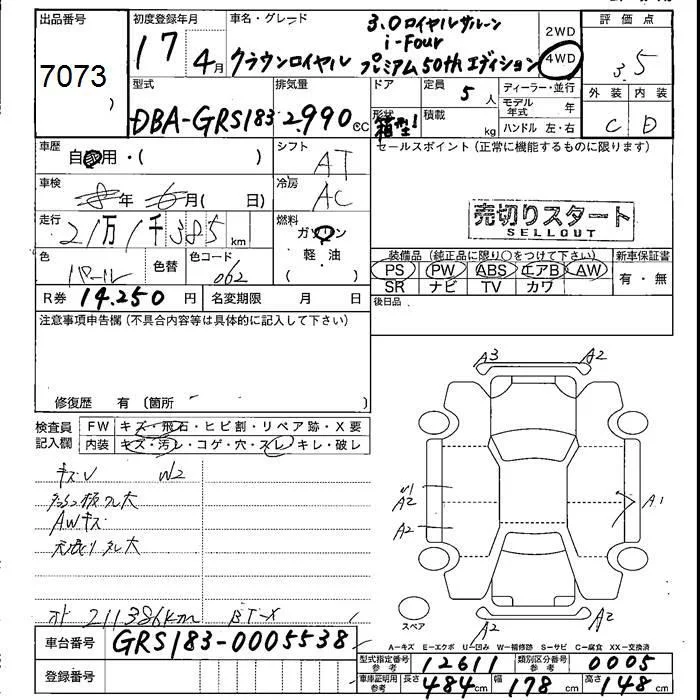 出品番号 初度登録年月 車名・グレード 3.0ロイヤルサルーン 2WD 評価点
7073 17 4月 クラウンロイヤル i-Four 4WD 3.5
プレミアム50thエディション
型式 排気量 ドア 定員 5人 ディーラー・並行 外装 内装
DBA-GRS183 2.990cc 形状 箱型 積載 kg モデル年式 年 C D
ハンドル 左・右
車歴 自家用・( ) シフト AT セールスポイント(正常に機能するものに限ります)
車検 8年 6月( 日) 冷房 AC
走行 21万1千385km 燃料 ガソリン 売切りスタート
SELLOUT
軽・油
( )
色 パール 色替 色コード 062 装備品(純正品に限り○をつけて下さい) 新車保証書
PS PW ABS エアB AW 有・無
SR ナビ TV カワ
R券 14.250円 名変期限 月 日 後日品
注意事項申告欄(不具合内容等は具体的に記入して下さい)
修復歴 有〔箇所
検査員記入欄 FW キズ・飛石・ヒビ割・リペア跡・X要
内装 キズ・汚レ・コゲ・穴・スレ・キレ・破レ
A3 A2
キズV W2
A2 A1
AWキズ
A2
211386km BT-X
スペア A2 A2
車台番号 GRS183-0005538
A-キズ E-エクボ U-凹み W-補修跡 S-サビ C-腐食 XX-交換済
型式指定番号 参考 12611 類別区分番号 参考 0005
登録番号 車庫証明用 参考 長さ 484cm 幅 178cm 高さ 148cm